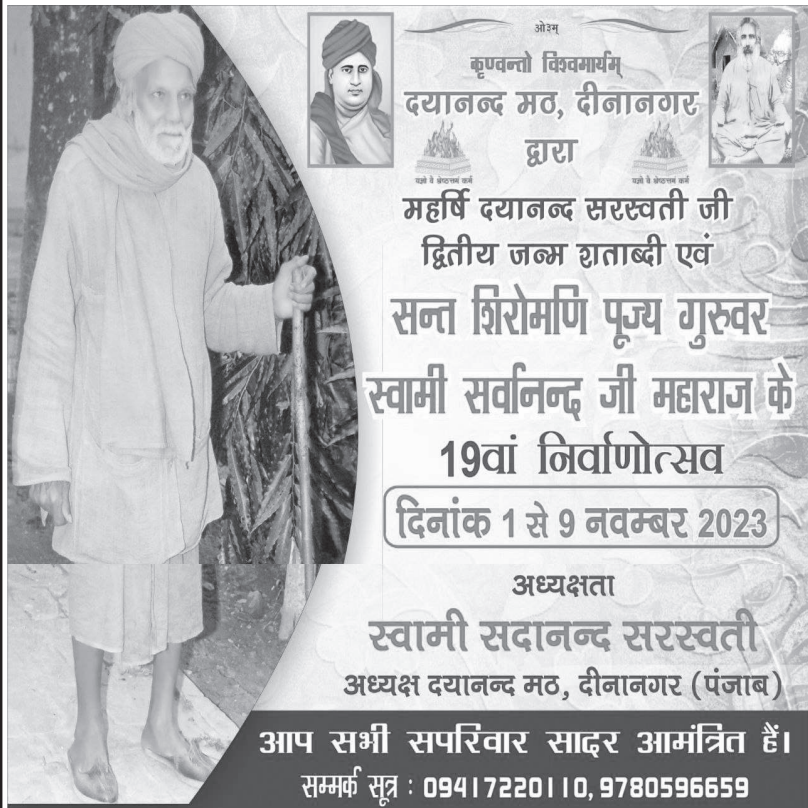 ओ३म्
कृण्वन्तो विश्वमार्यम्
दयानन्द मठ, दीनानगर
द्वारा
यज्ञो वै श्रेष्ठतमं कर्म
यज्ञो वै श्रेष्ठतमं कर्म
महर्षि दयानन्द सरस्वती जी
द्वितीय जन्म शताब्दी एवं
सन्त शिरोमणि पूज्य गुरुवर
स्वामी सर्वानन्द जी महाराज के
19वां निर्वाणोत्सव
दिनांक 1 से 9 नवम्बर 2023
अध्यक्षता
स्वामी सदानन्द सरस्वती
अध्यक्ष दयानन्द मठ, दीनानगर (पंजाब)
आप सभी सपरिवार सादर आमंत्रित हैं।
सम्मर्क सूत्र : 09417220110, 9780596659